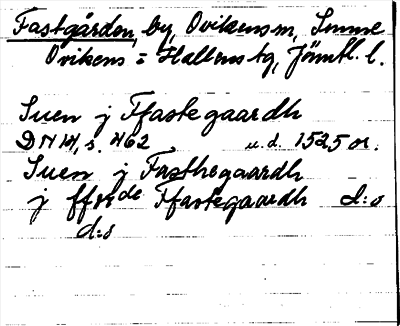 Fastgården, by, Ovikens sn,
Ovikens o Hallens tg, Jämtl. l.
Suen j Ffastegaardh
DN 14, s. 162 u.d. 1525 or.
Suen j Fasthegaardh
j ffor de Ffastegaardh d:o
d:o